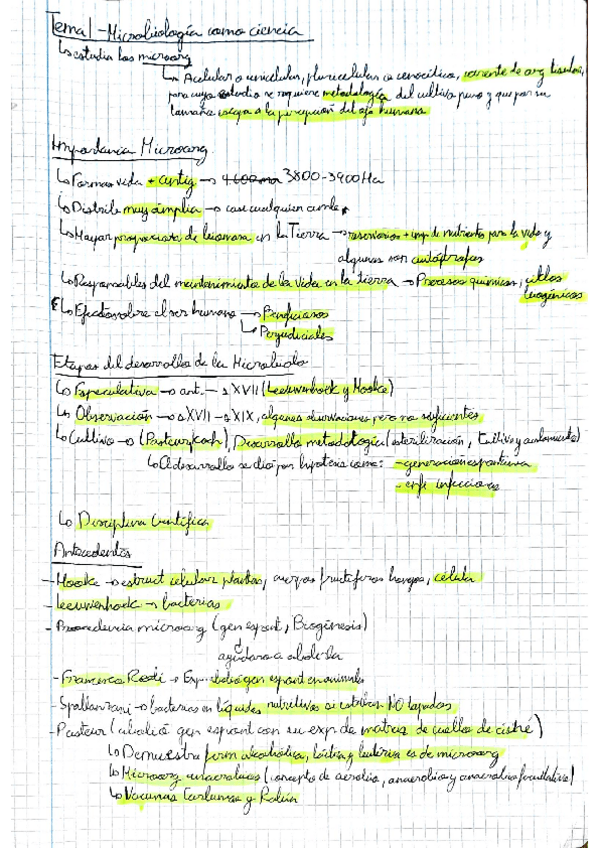 Tema 1 - Microbiología como ciencia
↳ estudia los microorg
↳ Acelular o unicelular, pluricelular o cenocítico, carente de org tisular,
para cuyo estudio se requiere metodología del cultivo puro y que por su
tamaño escapa a la percepción del ojo humano
Importancia Microorg
↳ Formas vida + antig → 3800-3900 Ma
↳ Distrib muy amplia → casi cualquier
↳ Mayor proporción de biomasa en la Tierra → reservorios + imp de nutrientes para la vida y
algunos son autótrofos
↳ Responsables del mantenimiento de la vida en la tierra → Procesos químicos, ciclos
biogénicos
↳ Efectos sobre el ser humano → Beneficiosos
↳ Perjudiciales
Etapas del desarrollo de la Microbiolo
↳ Especulativa → ant. - s XVII (Leeuwenhoek y Hooke)
↳ Observación → s XVII - s XIX, algunas observaciones pero no suficientes
↳ Cultivo → (Pasteur y Koch), Desarrollo metodología (esterilización, cultivo y aislamiento)
↳ El desarrollo se dio por hipótesis como: - generación espontánea
- enf infecciosas
↳ Disciplina Científica
Antecedentes
- Hooke → estruct celular plantas, cuerpos fructíferos hongos, célula
- Leeuwenhoek → bacterias
- Procedencia microorg (gen espont, Biogénesis)
ayudaron a abolirla
- Francesco Redi → Exp. abolió gen espont en animales
- Spallanzani → bacterias en líquidos nutritivos si estaban NO tapados
- Pasteur (abolió gen espont con su exp de matraz de cuello de cisne)
↳ Demuestra ferm alcohólica, láctica y butírica es de microorg
↳ Microorg anaerobios (concepto de aerobio, anaerobio y anaerobio facultativo)
↳ Vacunas Carbunco y Rabia